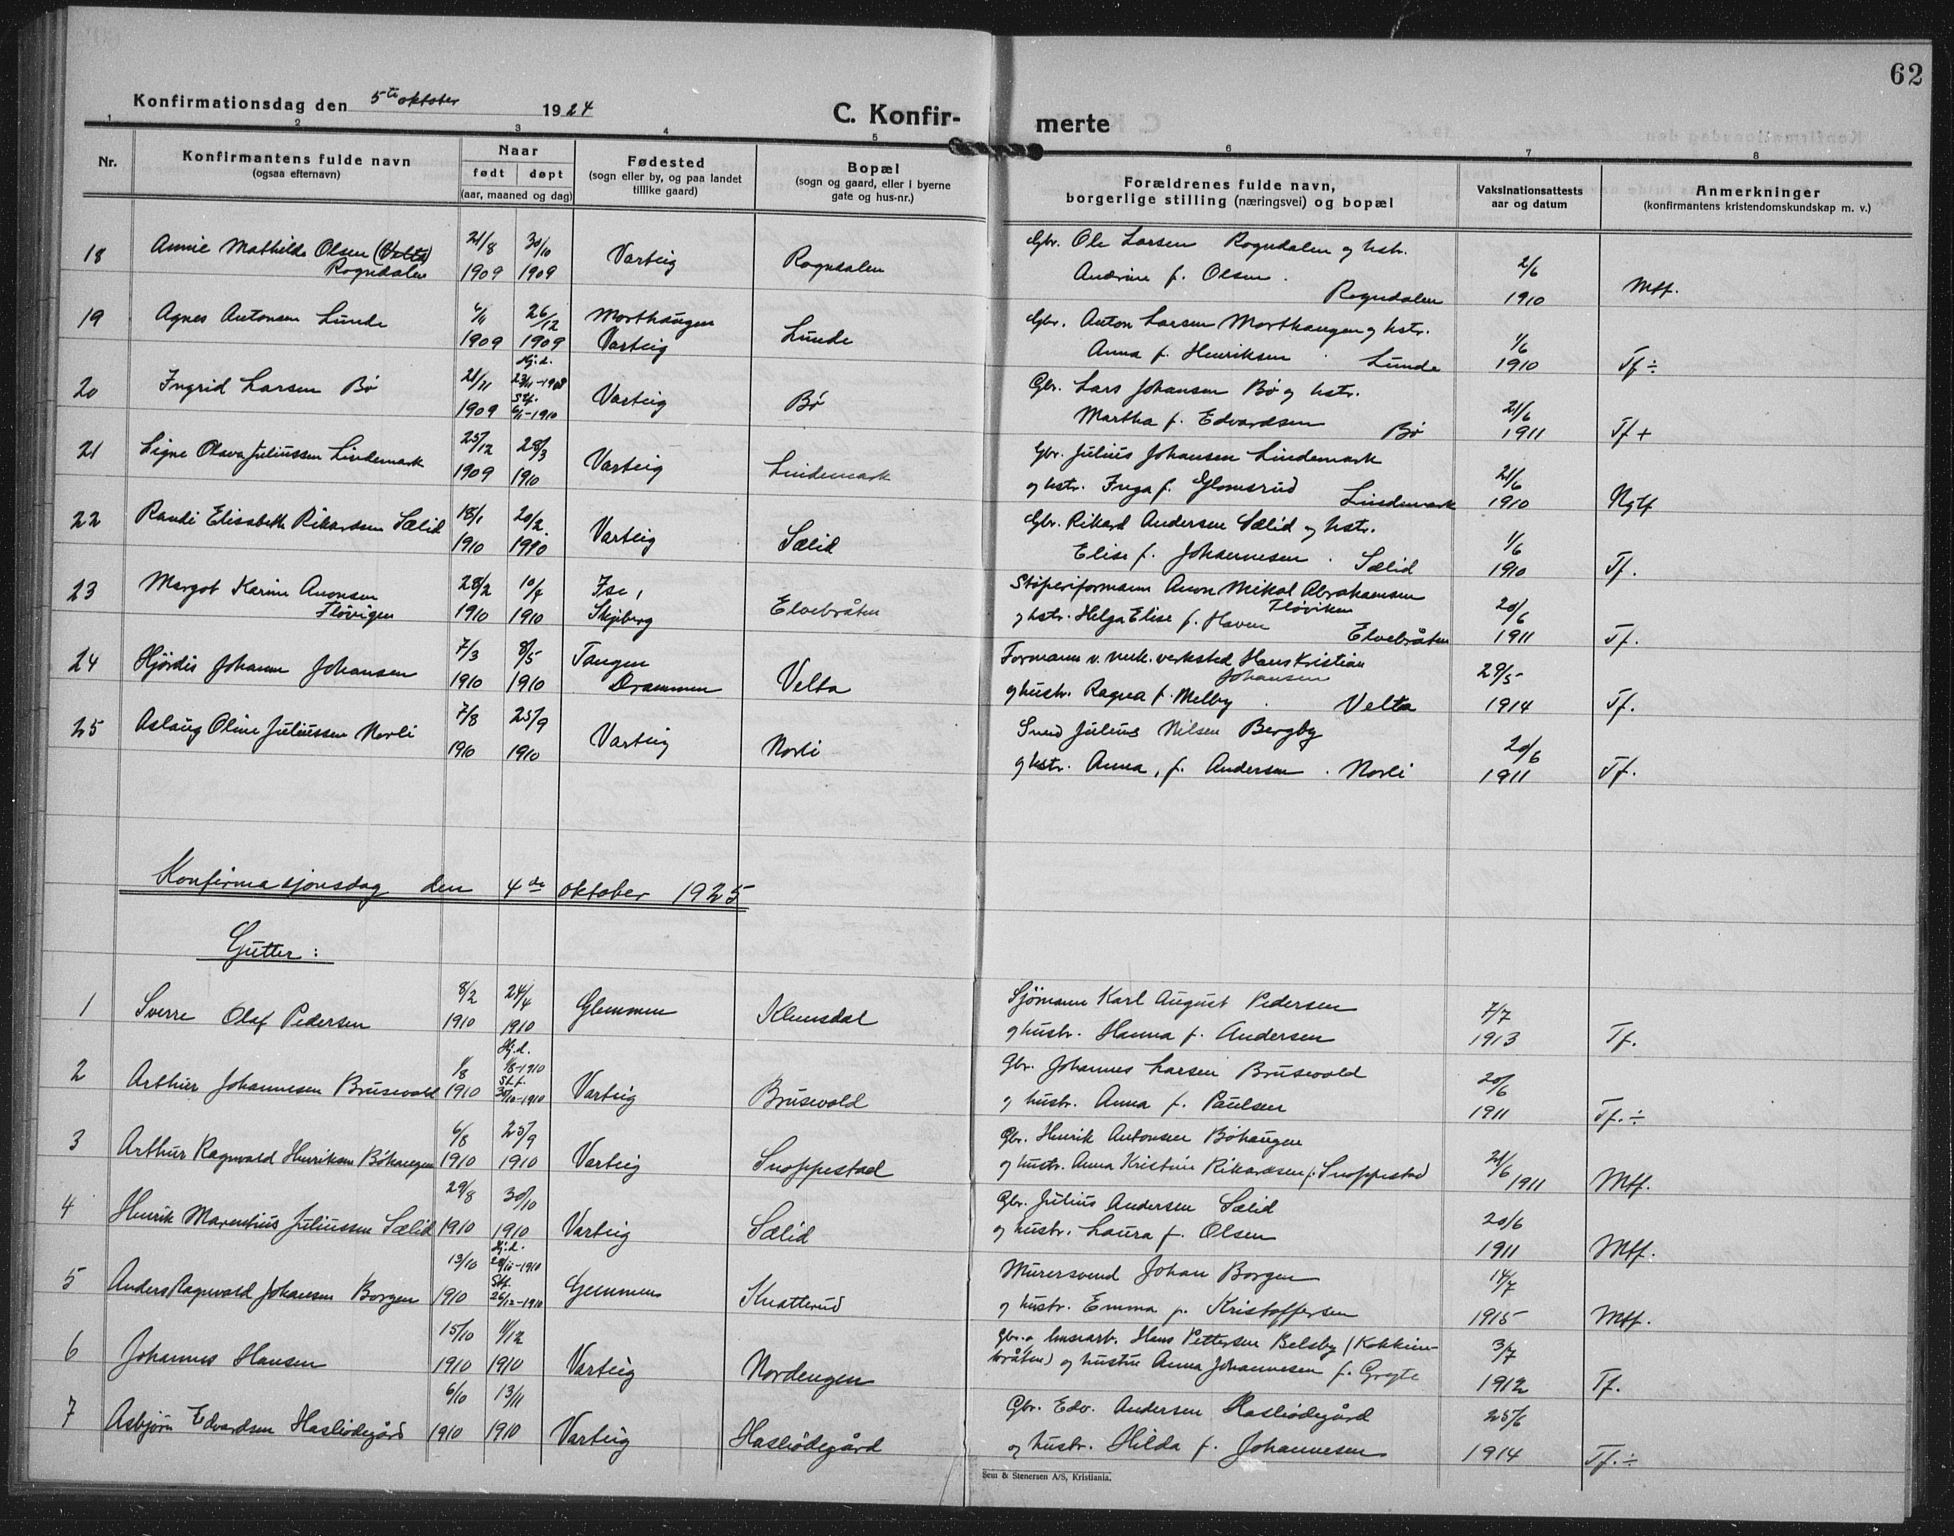 62
Konfirmationsdag den 5te oktober 1924
C. Konfir- merte
1 2 3 4 5 6 7 8
Nr.
Konfirmantens fulde navn
(ogsaa efternavn)
Naar
født døpt
(aar, maaned og dag)
Fødested
(sogn eller by, og paa landet
tillike gaard)
Bopæl
(sogn og gaard, eller i byerne
gate og hus-nr.)
Forældrenes fulde navn,
borgerlige stilling (næringsvei) og bopæl
Vaksinationsattests
aar og datum
Anmerkninger
(konfirmantens kristendomskundskap m. v.)
18 Annie Mathilde Olsen (Velta) 21/8 30/10 Varteig Rogndalen Gbr. Ole Larsen Rogndalen og hstr. 2/6
Rogndalen 1909 1909 Andrine f. Olsen. Rogndalen 1910 Mtf.
19 Agnes Antonsen Lunde 6/11 26/12 Morthaugen Lunde Gbr. Anton Larsen Morthaugen og hstr. 1/6
1909 1909 Varteig Anna f. Henriksen. Lunde 1910 Tf ÷
20 Ingrid Larsen Bø 21/11 Hj.d. 23/11-1908 Varteig Bø Gbr. Lars Johansen Bø og hstr. 21/6
1909 Stf. 6/1-1910 Martha f. Edvardsen Bø 1911 Tf +
21 Signe Olava Juliussen Lindemark 25/12 28/3 Varteig Lindemark Gbr. Julius Johansen Lindemark 21/6
1909 1910 og hstr. Inga f. Glomsrud Lindemark 1910 Ngtf
22 Randi Elisabeth Rikardsen Sælid 18/1 20/2 Varteig Sælid Gbr. Rikard Andersen Sælid og hstr. 1/6
1910 1910 Elise f. Johannesen. Sælid 1910 Tf.
23 Margot Karine Anonsen 28/2 10/4 Ise, Elvebråten Støperiformann Anon Mikal Abrahamsen 20/6
Fløvigen 1910 1910 Skjeberg Fløviken
og hstr. Helga Elise f. Haven Elvebråten 1911 Tf.
24 Hjørdis Johanne Johansen 7/3 8/5 Tangen Velta Formann v. mek. verksted Hans Kristian 29/5
1910 1910 Drammen Johansen
og hustr. Ragna f. Melby. Velta 1914 Tf.
25 Aslaug Oline Juliussen Norli 7/8 25/9 Varteig Norli Smed Julius Nilsen Bergby 20/6
1910 1910 og hstr. Anna, f. Andersen. Norli 1911 Tf.
Konfirmasjonsdag den 4de oktober 1925
Gutter:
1 Sverre Olaf Pedersen 8/2 24/4 Glemmen Klemsdal Sjømann Karl August Pedersen 7/7
1910 1910 og hustr. Hanna f. Andersen 1913 Tf.
2 Arthur Johannesen Brusevold 1/8 Hj.d. 1/8-1910 Varteig Brusevold Gbr. Johannes Larsen Brusevold 20/6
1910 St.f. 30/10-1910 og hustr. Anna f. Paulsen 1911 Tf. ÷
3 Arthur Ragnvald Henriksen Bøhaugen 6/8 25/9 Varteig Snoppestad Gbr. Henrik Antonsen Bøhaugen 21/6
1910 1910 og hustr. Anna Kristine Rikardsen f. Snoppestad 1911 Mtf.
4 Henrik Marentius Juliussen Sælid 29/8 30/10 Varteig Sælid Gbr. Julius Andersen Sælid 20/6
1910 1910 og hustr. Laura f. Olsen 1911 Mtf.
5 Anders Ragnvald Johansen Borgen 13/10 Hj.d. 28/10-1910 Gemmen Knatterud Murersvend Johan Borgen 14/7
1910 Stf. 26/12-1910 og hustr. Emma f. Kristoffersen 1915 Mtf.
6 Johannes Hansen 15/10 11/12 Varteig Nordengen Gbr. a. husarb. Hans Pettersen Belsby (Kokkim- 3/7
1910 1910 bråten) og hustru Anna Johannesen f. Grøgte 1912 Tf.
7 Asbjørn Edvardsen Hasliødegård 6/10 13/11 Varteig Hasliødegård Gbr. Edv. Andersen Hasliødegård 25/6
1910 1910 og hustr. Hilda f. Johannesen 1914 Tf. ÷
Sem & Stenersen A/S, Kristiania.